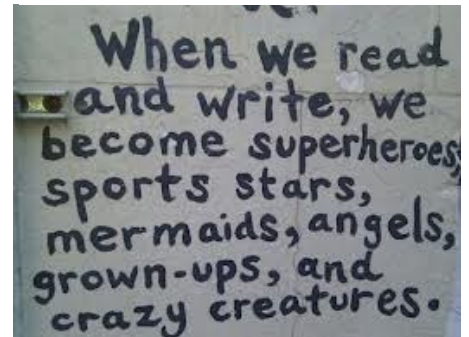 When we read
and write, we
become superheroes,
sports stars,
mermaids, angels,
grown-ups, and
crazy creatures.